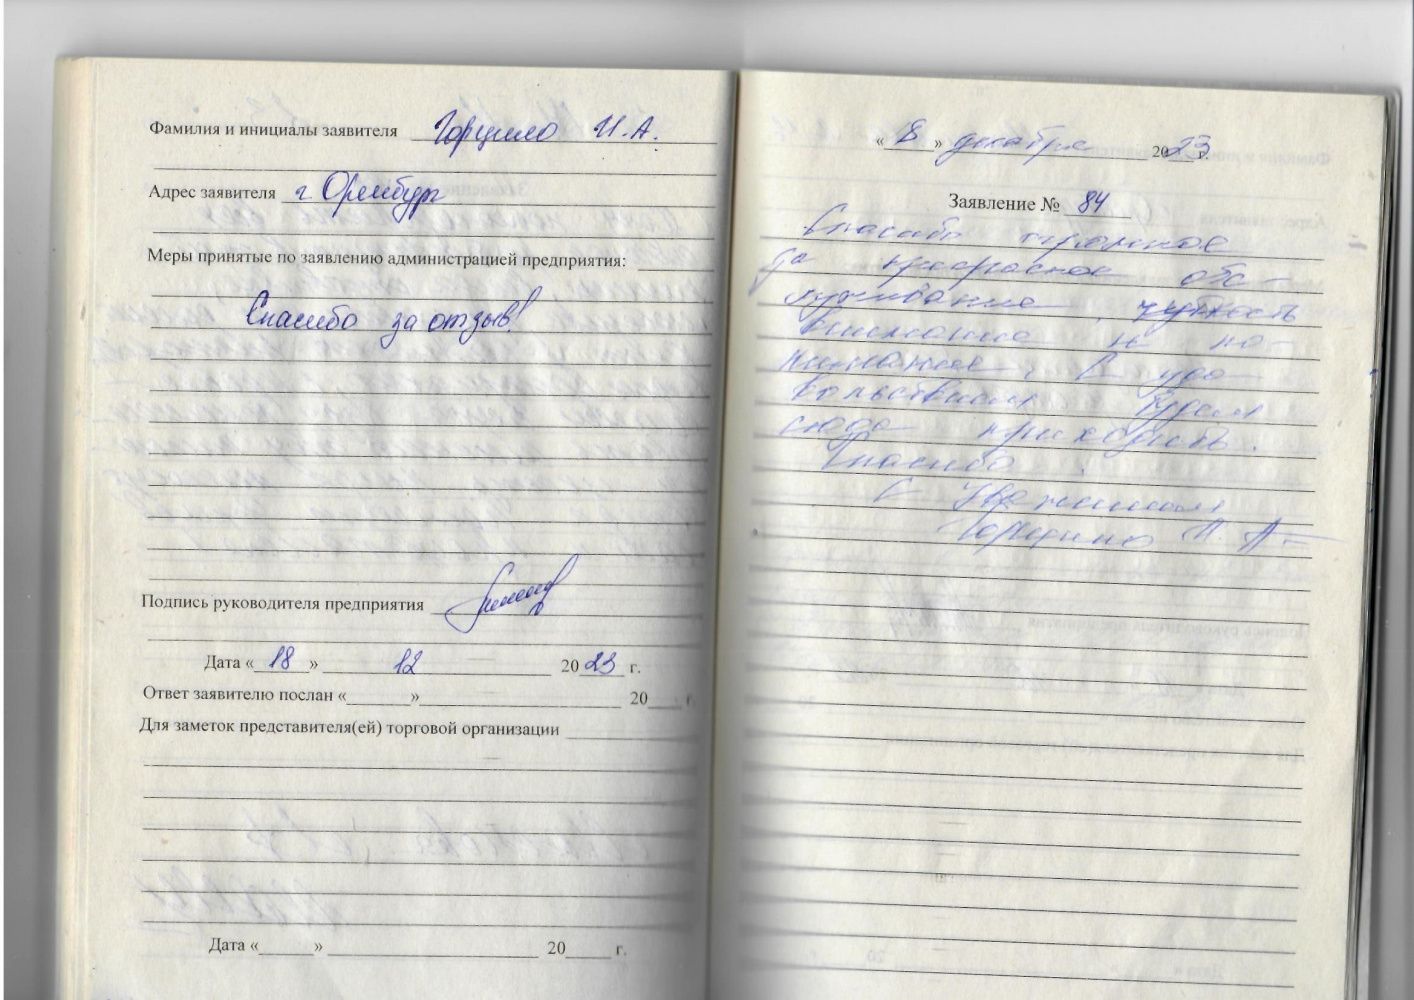 Фамилия и инициалы заявителя Горшило И.А.
Адрес заявителя г. Оренбург
Меры принятые по заявлению администрацией предприятия:
Спасибо за отзыв!
Подпись руководителя предприятия
Дата «18» 12 2023 г.
Ответ заявителю послан « » 20 г.
Для заметок представителя(ей) торговой организации
Дата « » 20 г.
«8» декабря 2023 г.
Заявление № 84
Спасибо огромное
за прекрасное обс-
луживание, чуткость
внимание и по-
нимание. С удо-
вольствием будем
сюда приходить.
Спасибо!
С уважением
И. А.